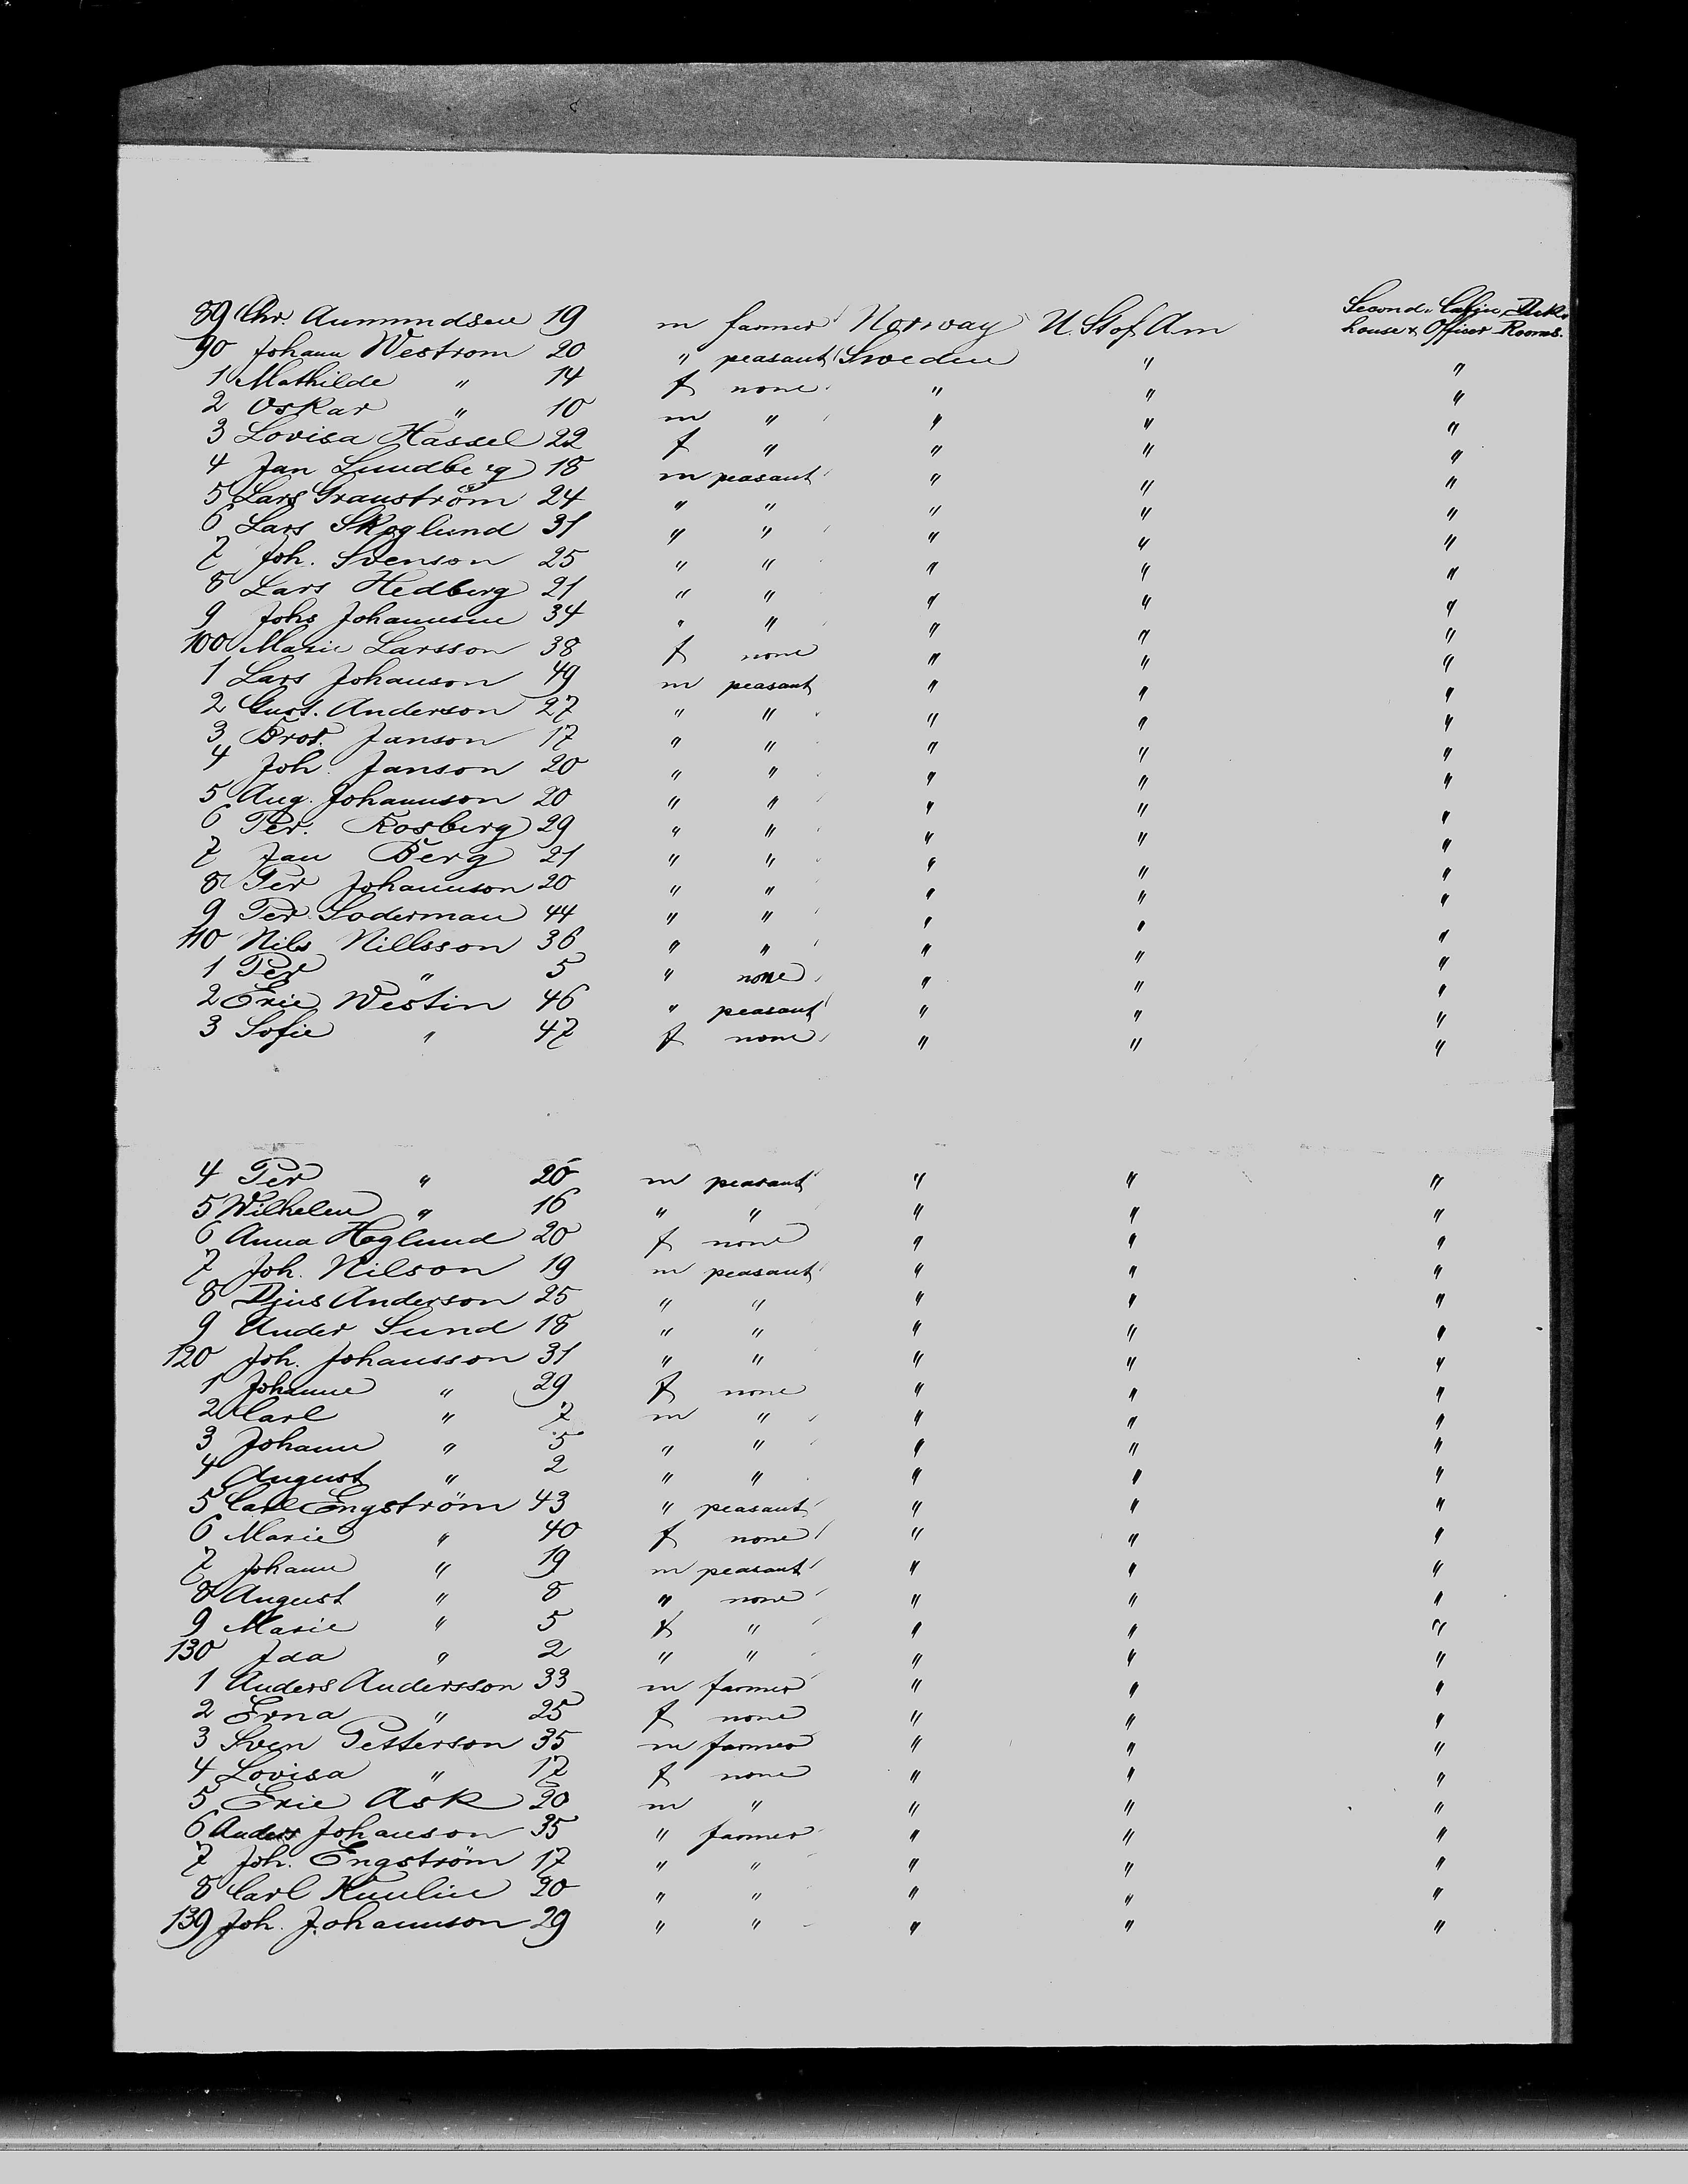 Second. Cabin, Deck-
89 Chr. Aumundsen 19 m farmer Norway U. St of Am house & Officer Rooms.
90 Johann Westrom 20 " peasant Sweden " "
1 Mathilde " 14 f none " " "
2 Oskar " 10 m " " " "
3 Lovisa Hassel 22 f " " " "
4 Jan Lundberg 18 m peasant " " "
5 Lars Granström 24 " " " " "
6 Lars Skoglund 31 " " " " "
7 Joh. Svenson 25 " " " " "
8 Lars Hedberg 21 " " " " "
9 Johs Johannsen 34 " " " " "
100 Marie Larsson 38 f none " " "
1 Lars Johanson 49 m peasant " " "
2 Gust. Anderson 27 " " " " "
3 Bros. Janson 17 " " " " "
4 Joh. Janson 20 " " " " "
5 Aug. Johannson 20 " " " " "
6 Per. Rosberg 29 " " " " "
7 Jan Berg 21 " " " " "
8 Per Johannson 20 " " " " "
9 Per. Soderman 44 " " " " "
110 Nils Nillsson 36 " " " " "
1 Per " 5 " none " " "
2 Eric Westin 46 " peasant " " "
3 Sofie " 47 f none " " "
4 Per " 20 m peasant " " "
5 Wilhelm " 16 " " " " "
6 Anna Hoglund 20 f none " " "
7 Joh. Nilson 19 m peasant " " "
8 Djus Anderson 25 " " " " "
9 Ander Sund 18 " " " " "
120 Joh. Johansson 31 " " " " "
1 Johanne " 29 f none " " "
2 Carl " 7 m " " " "
3 Johann " 5 " " " " "
4 August " 2 " " " " "
5 Carl Engström 43 " peasant " " "
6 Marie " 40 f none " " "
7 Johann " 19 m peasant " " "
8 August " 8 " none " " "
9 Marie " 5 f " " " "
130 Ida " 2 " " " " "
1 Anders Andersson 33 m farmer " " "
2 Erna " 25 f none " " "
3 Sven Petterson 35 m farmer " " "
4 Lovisa " 17 f none " " "
5 Eric Ask 20 m " " " "
6 Anders Johanson 35 " farmer " " "
7 Joh. Engström 17 " " " " "
8 Carl Kunlin 20 " " " " "
139 Joh. Johannson 29 " " " " "